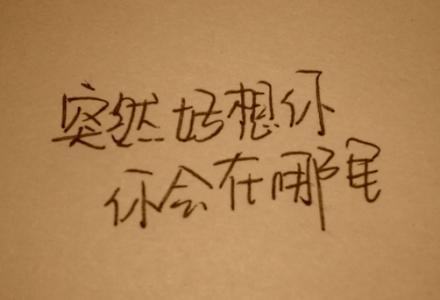 突然好想你
你会在哪里